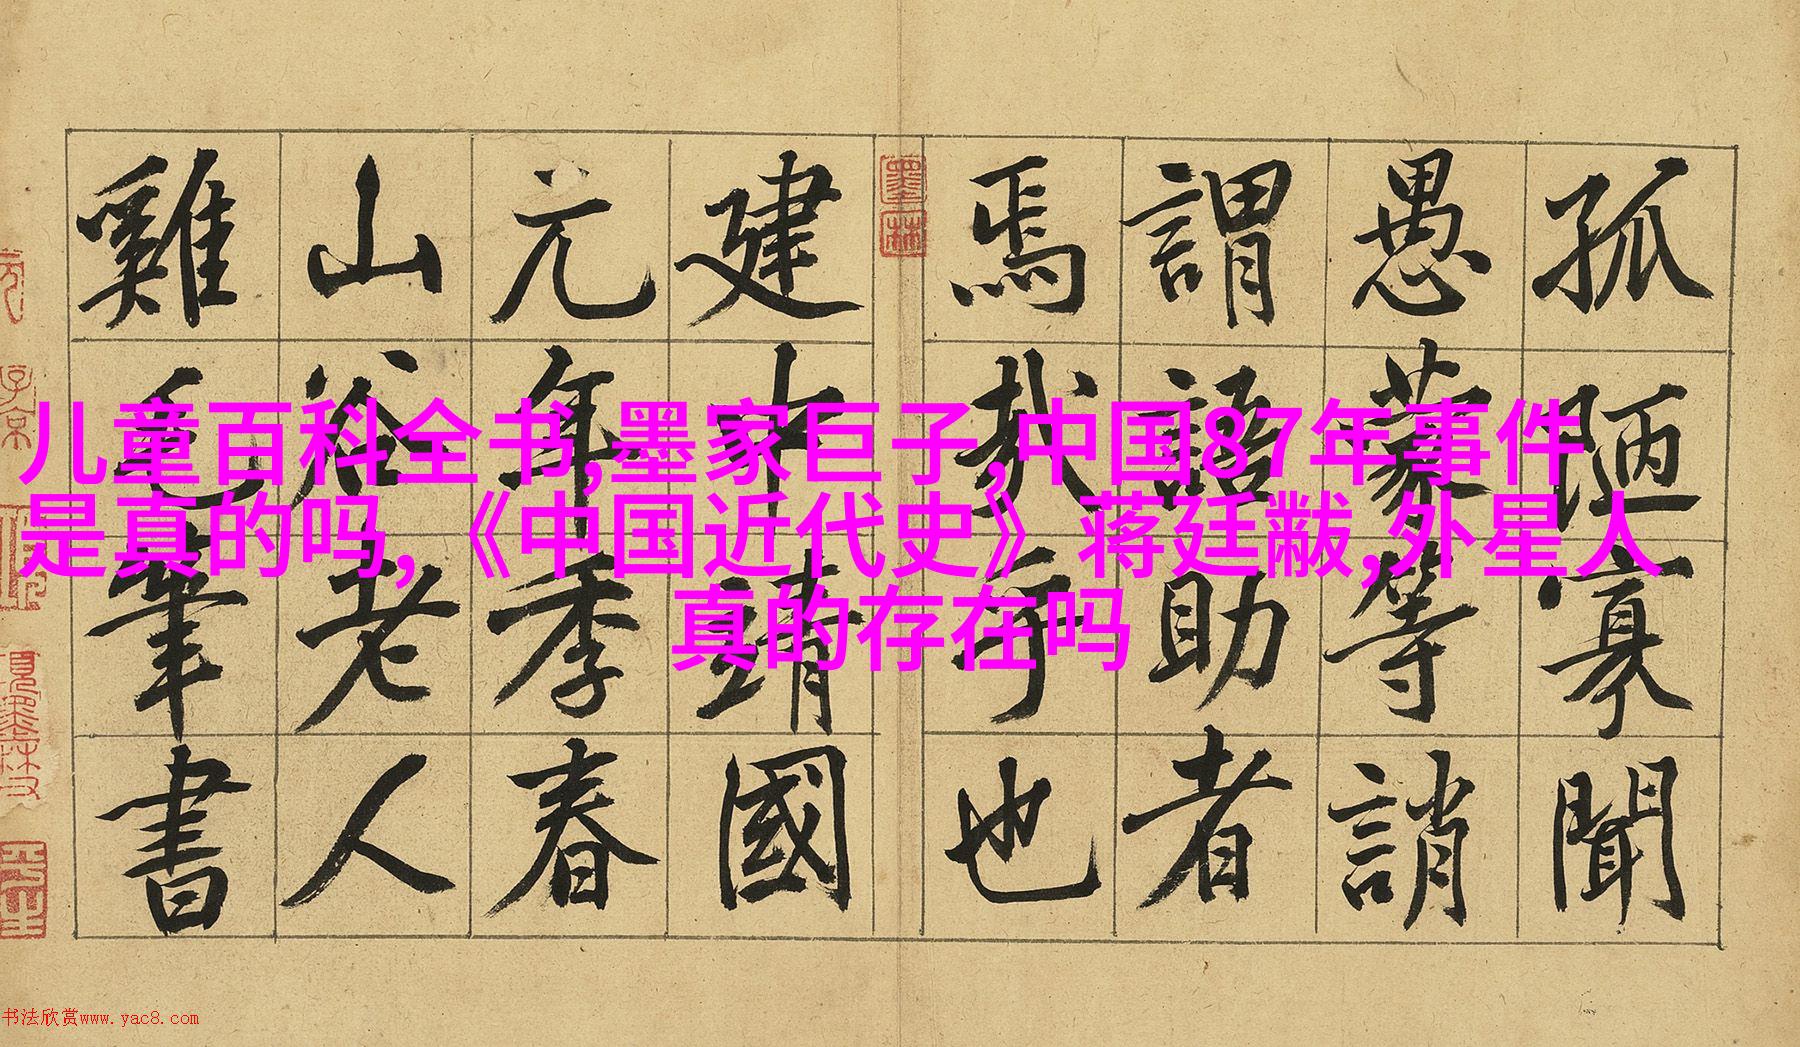 孤陋寡聞
愚蒙等誚
謂語助者
焉哉乎也
墨林
建中靖國
元年季春
山谷老人
雞毛筆書
儿童百科全书,墨家巨子,中国87年事件
是真的吗,《中国近代史》蒋廷黻,外星人
真的存在吗
子京
书法欣赏www.yac8.com